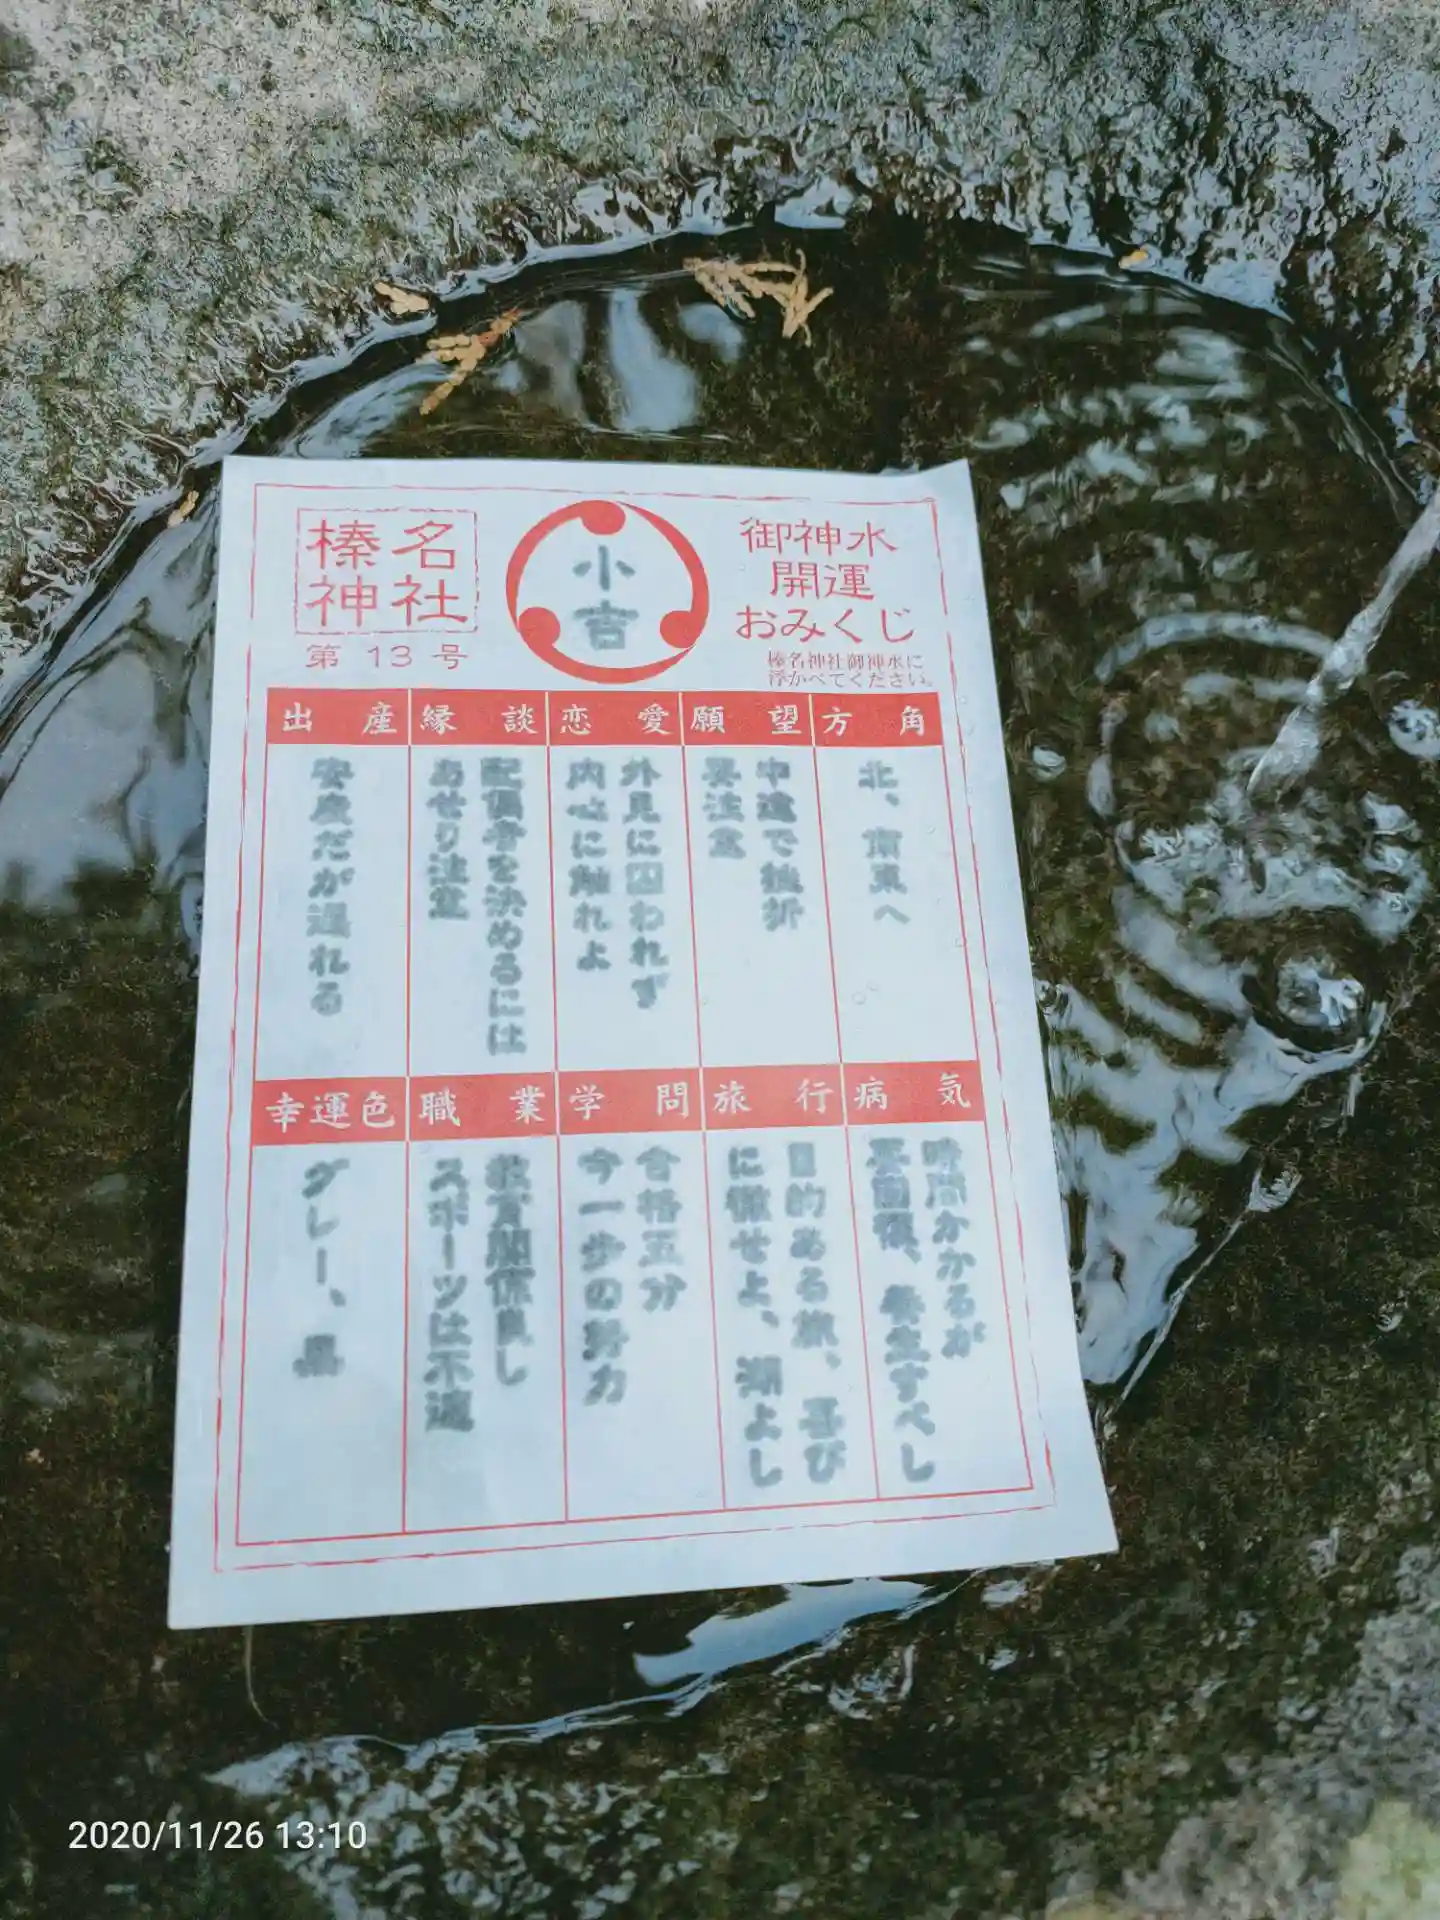 榛名
神社
第 13 号
小
吉
御神水
開運
おみくじ
榛名神社御神水に
浮かべてください。
方角
北、南東へ
願望
中途で挫折
要注意
恋愛
外見に囚われず
内心に触れよ
縁談
配偶者を決めるには
あせり注意
出産
安産だが遅れる
病気
時間かかるが
要回復、養生すべし
旅行
目的ある旅、喜び
に徹せよ、湖よし
学問
合格五分
今一歩の努力
職業
教育関係良し
スポーツは不適
幸運色
グレー、黒
2020/11/26 13:10